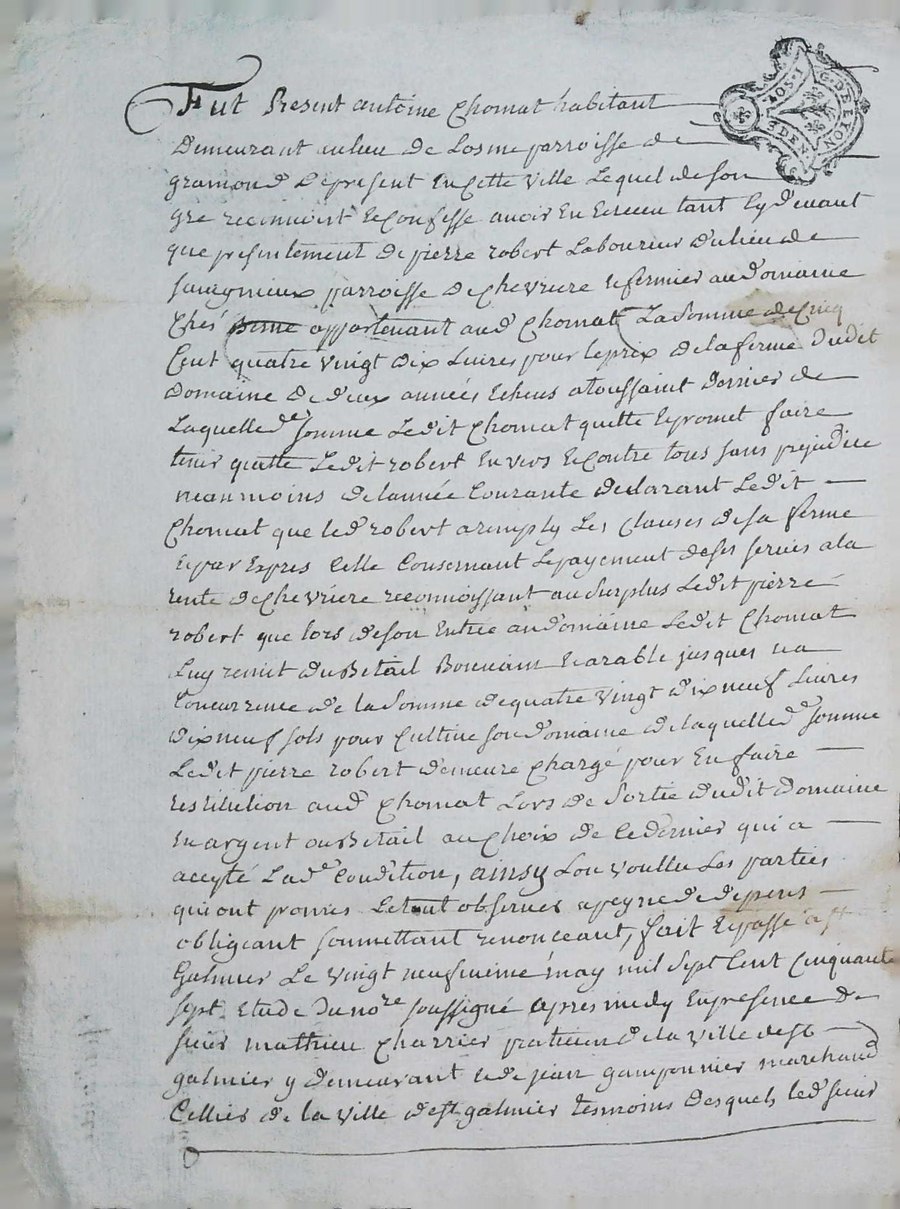 G. DE LYON
1. SOL. 3 DEN.
Fut Present antoine Chomat habitant
Demeurant au lieu de Losme parroisse de
gramond De present En cette ville Lequel de son
gre reconnoist Et confesse avoir En Receu tant Cy devant
que presentement de pierre robert Laboureur du lieu de
parroisse de Chevriere et fermier au domaine
Chés appartenant aud Chomat La Somme de Cinq
Cent quatre vingt dix Livres pour le prix de la ferme dudit
Domaine de deux années Echeus a toussaint dernier de
Laquelle d. somme Ledit Chomat quitte Et promet faire
tenir quitte Ledit robert En vers Et contre tous sans prejudice
neanmoins de lannée Courante declarant Ledit
Chomat que led robert a remply Les Clauses de sa ferme
Et par Expres Celle Consernant Le payement des servis a la
rente de Chevriere reconnoissant au Surplus Ledit pierre
robert que lors de son Entrée au domaine Ledit Chomat
Luy remit du Betail Bouvain Et arable jusques a la
Concurrence de la Somme de quatre vingt dix neuf Livres
dix neuf sols pour Cultive son domaine de laquelle d. somme
Ledit pierre robert demeure Chargé pour En faire
restitution aud Chomat Lors de Sortie dudit Domaine
En argent ou Betail au Choix de Ce dernier qui a
accepté Lad. Condition, ainsy Lon voullu Les parties
qui ont promis Le tout observer a peyne de depens
obligeant soumettant renonceant, fait Et passé a st
Galmier Le vingt neufvieme may mil sept Cent Cinquante
sept Etude du nore soussigné apres midy En presence de
sieur mathieu Charrier praticien de la ville de st
galmier y demeurant et de jean gamponnier marchand
Cellier de la ville de st galmier tesmoins desquels led sieur